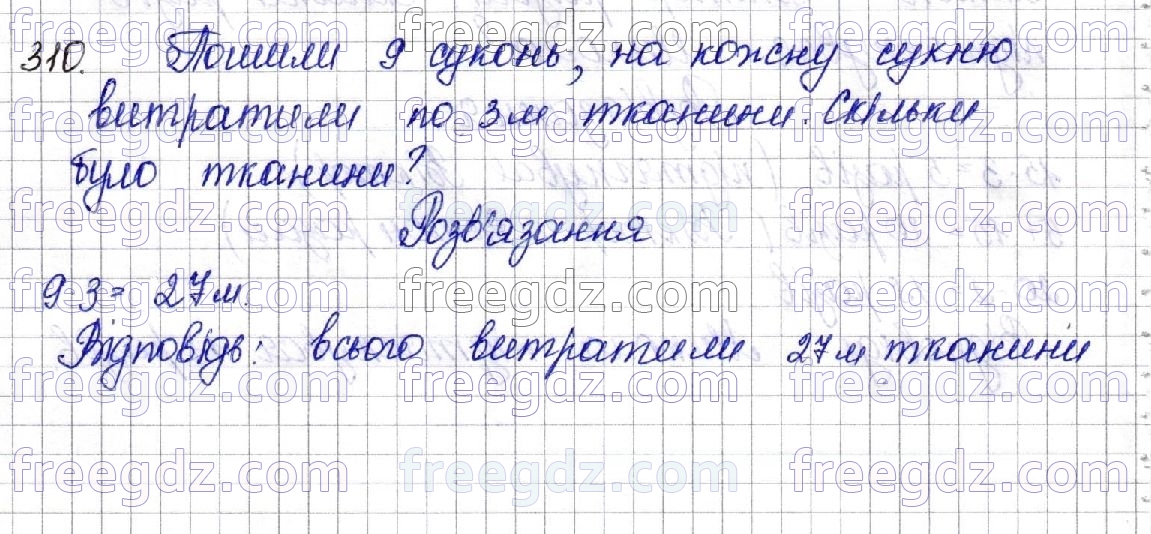 310. Пошили 9 суконь, на кожну сукню
витратили по 3 м тканини. Скільки
було тканини?
Розв'язання
9·3= 27м.
Відповідь: всього витратили 27м тканини
freegdz.com freegdz.com freegdz.com
freegdz.com freegdz.com freegdz.com
freegdz.com freegdz.com freegdz.com
freegdz.com freegdz.com freegdz.com
freegdz.com freegdz.com freegdz.com
freegdz.com freegdz.com freegdz.com
freegdz.com freegdz.com freegdz.com
freegdz.com freegdz.com freegdz.com